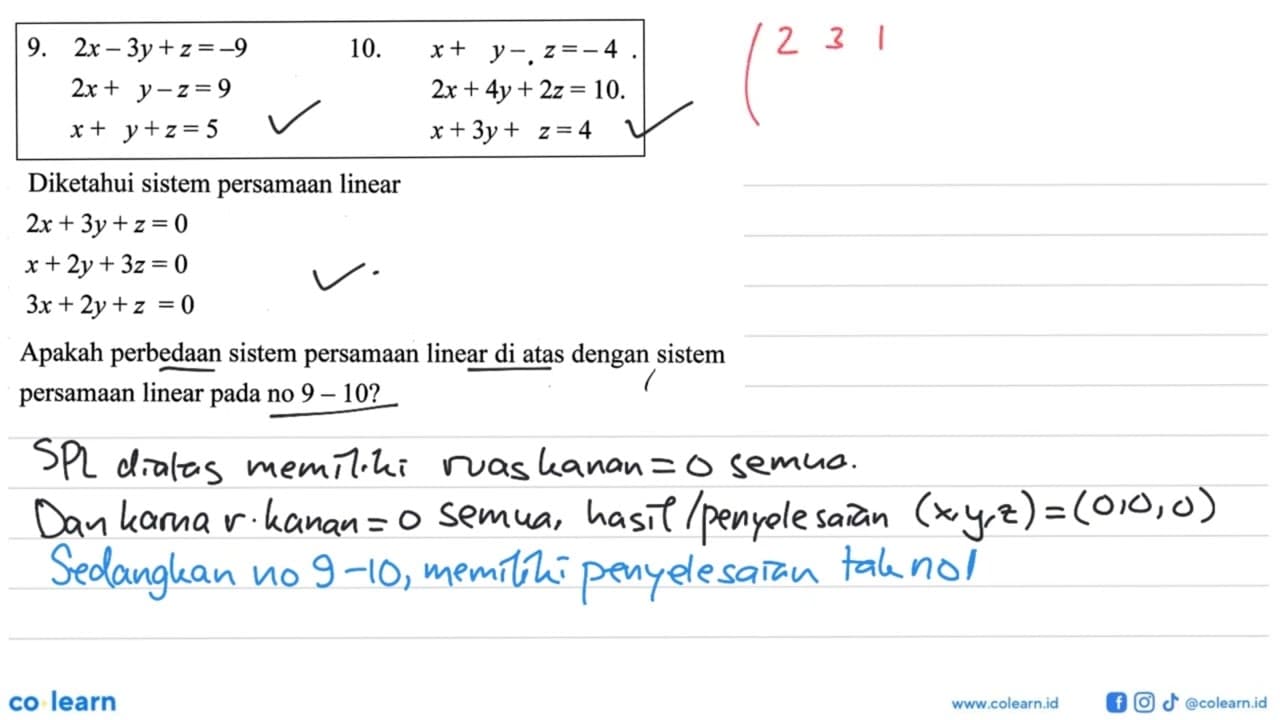 9. 2x – 3y + z = –9 10. x + y – z = – 4 .
2x + y – z = 9 2x + 4y + 2z = 10.
x + y + z = 5 x + 3y + z = 4
( 2 3 1
Diketahui sistem persamaan linear
2x + 3y + z = 0
x + 2y + 3z = 0
3x + 2y + z = 0
Apakah perbedaan sistem persamaan linear di atas dengan sistem
persamaan linear pada no 9 – 10?
SPL diatas memiliki ruas kanan = 0 semua.
Dan karna r. kanan = 0 semua, hasil/penyelesaian (x,y,z) = (0,0,0)
Sedangkan no 9-10, memiliki penyelesaian tak nol
co learn
www.colearn.id @colearn.id